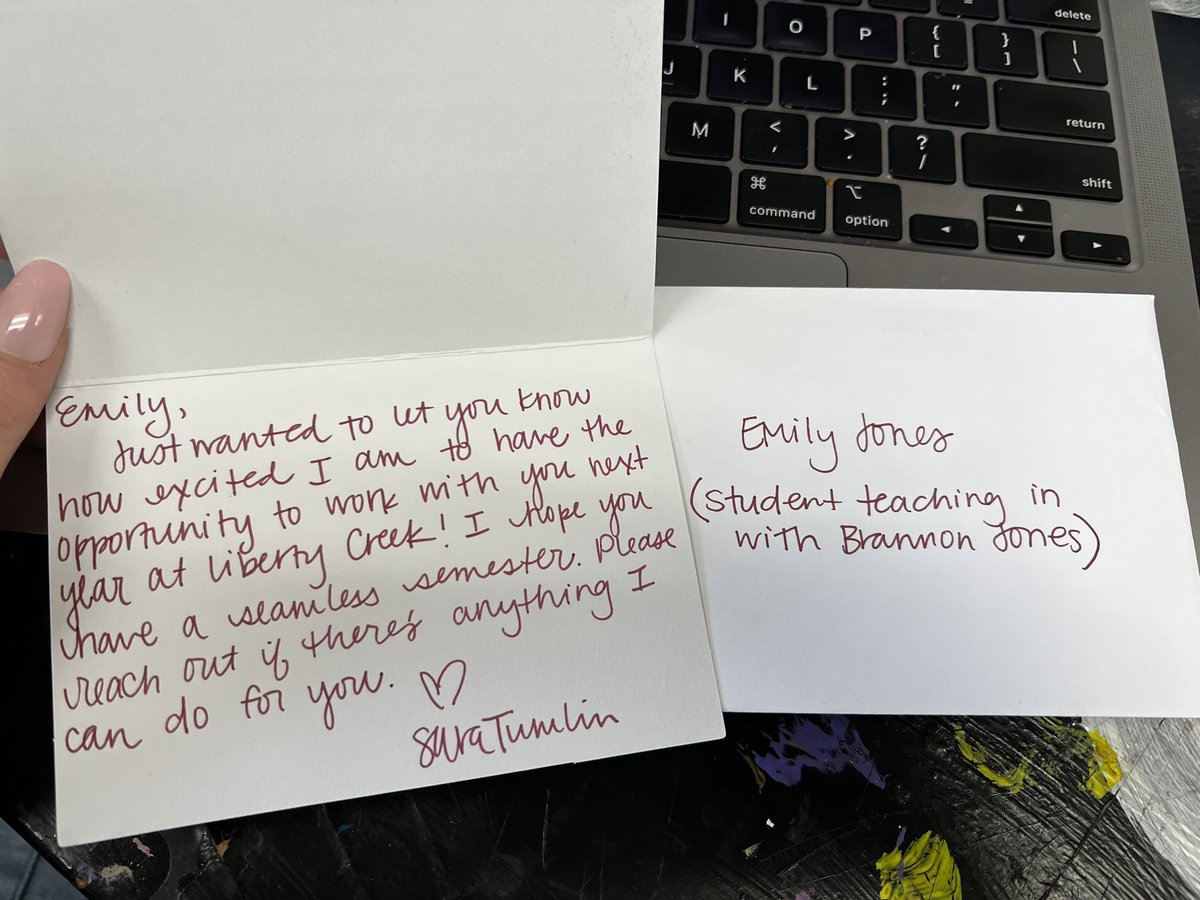 I O P { [ } ] | \ delete
J K L : ; " ' return
M < , > . ? / shift
⌘ command ⌥ option ◄ ▲ ▼ ►
Emily,
Just wanted to let you know
how excited I am to have the
opportunity to work with you next
year at Liberty Creek! I hope you
have a seamless semester. Please
reach out if there's anything I
can do for you. ♡
Sara Tumlin
Emily Jones
(student teaching in
with Brannon Jones)